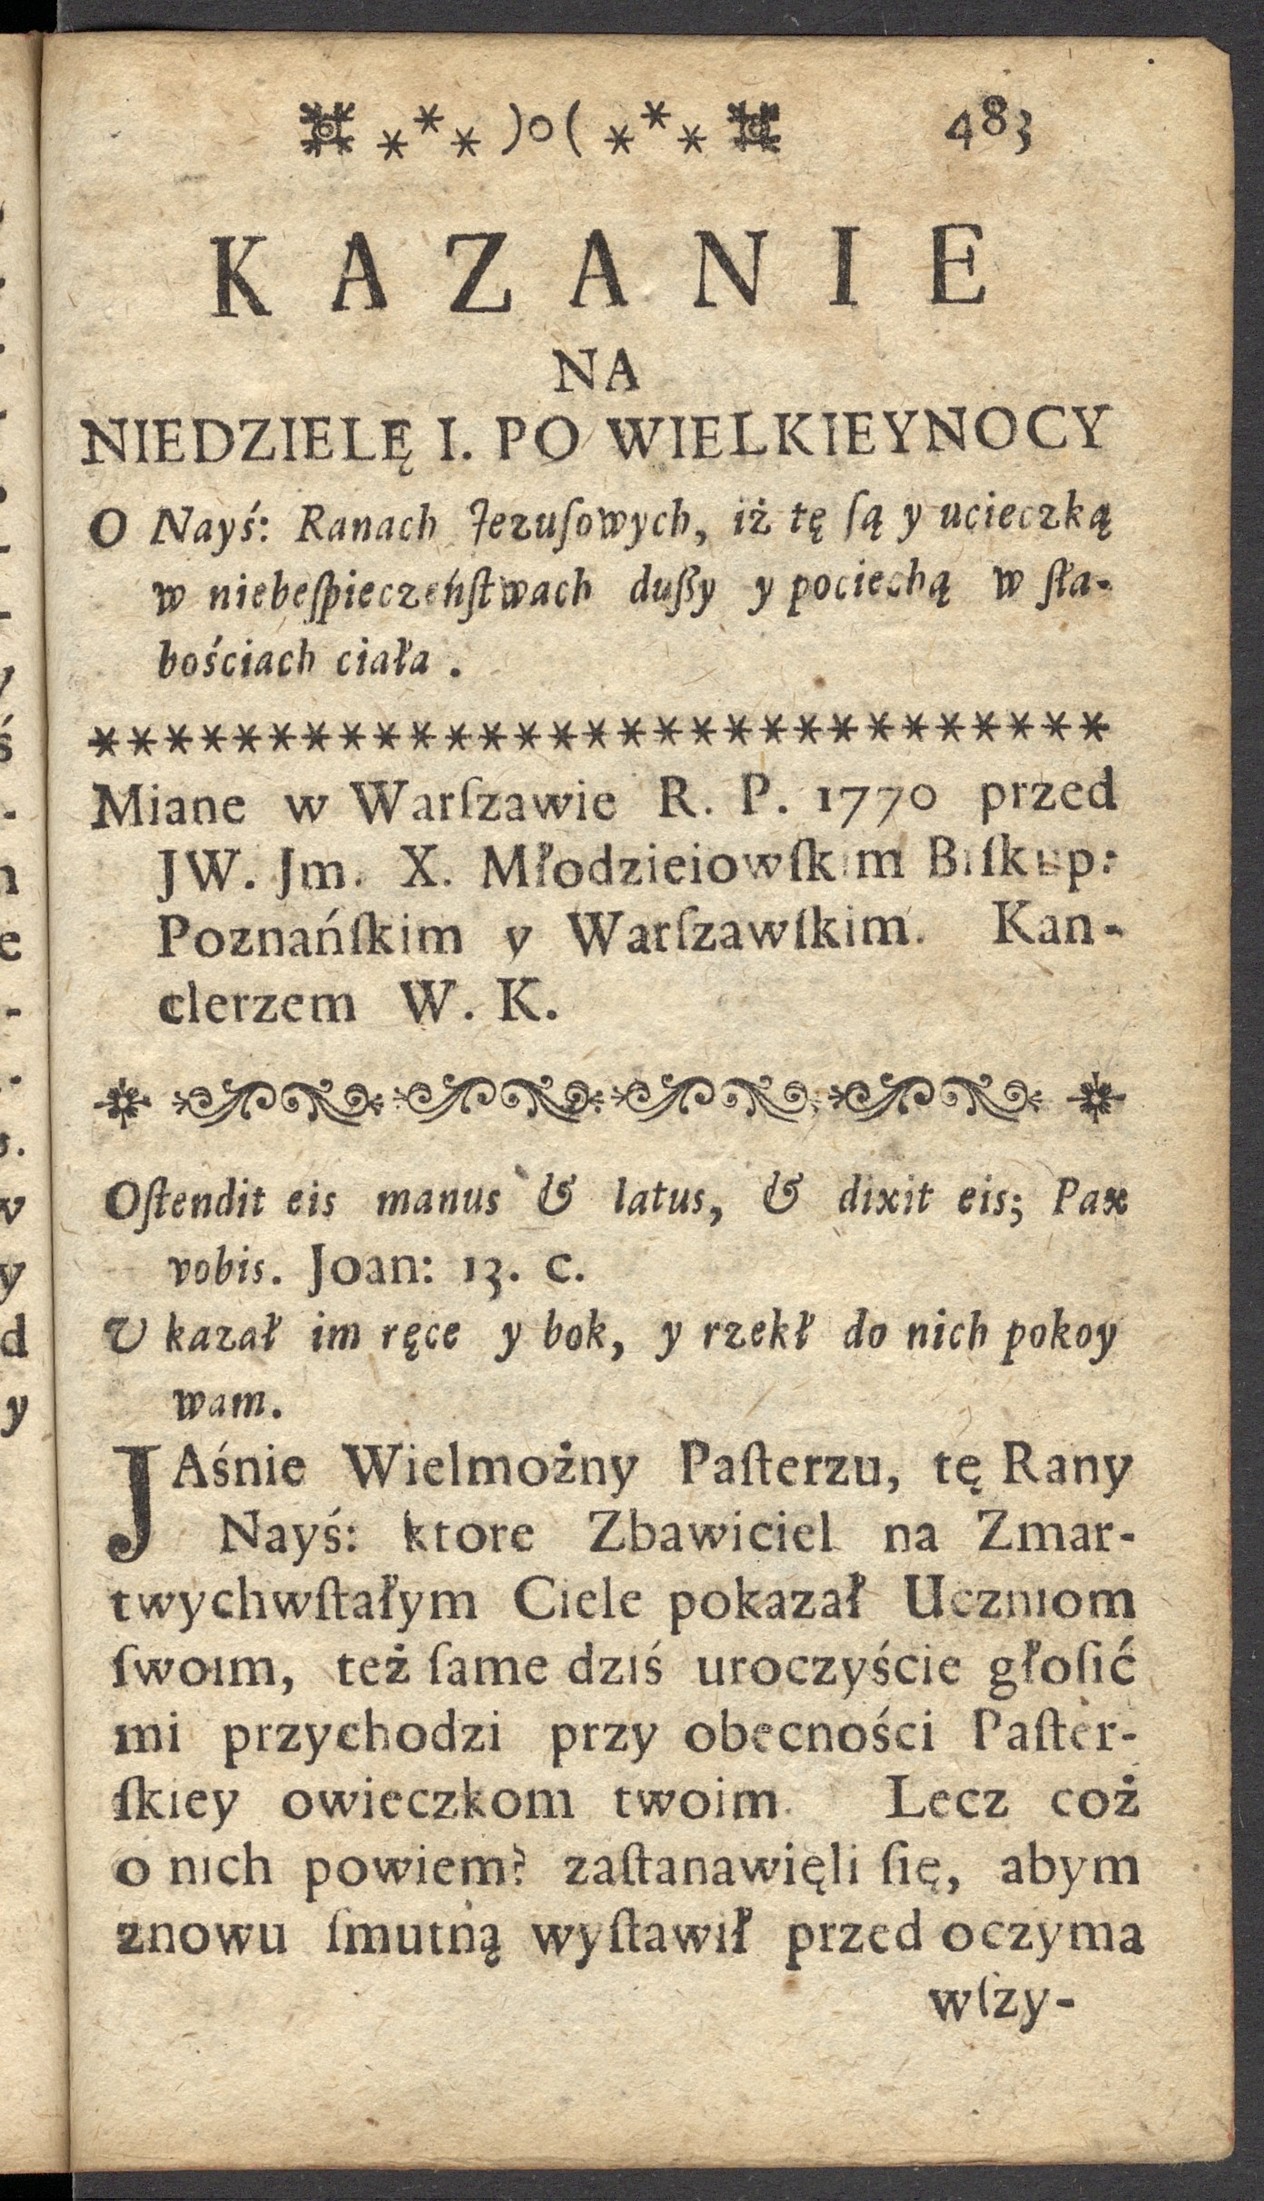 )o( 483
KAZANIE
NA
NIEDZIELĘ I. PO WIELKIEYNOCY
O Nayś: Ranach Jezuſowych, iż tę ſą y ucieczką
w niebeſpieczeńſtwach dußy y pociechą w ſła-
bościach ciała.
******************************
Miane w Warſzawie R. P. 1770 przed
JW. Jm. X. Młodzieiowſkim Biſkup:
Poznańſkim y Warſzawſkim. Kan-
clerzem W. K.
Oſtendit eis manus & latus, & dixit eis; Pax
vobis. Joan: 13. c.
U kazał im ręce y bok, y rzekł do nich pokoy
wam.
JAśnie Wielmożny Paſterzu, tę Rany
Nayś: ktore Zbawiciel na Zmar-
twychwſtałym Ciele pokazał Uczniom
ſwoim, też ſame dziś uroczyście głoſić
mi przychodzi przy obecności Paſter-
ſkiey owieczkom twoim. Lecz coż
o nich powiem? zaſtanawięli ſię, abym
znowu ſmutną wyſtawił przed oczyma
wſzy-